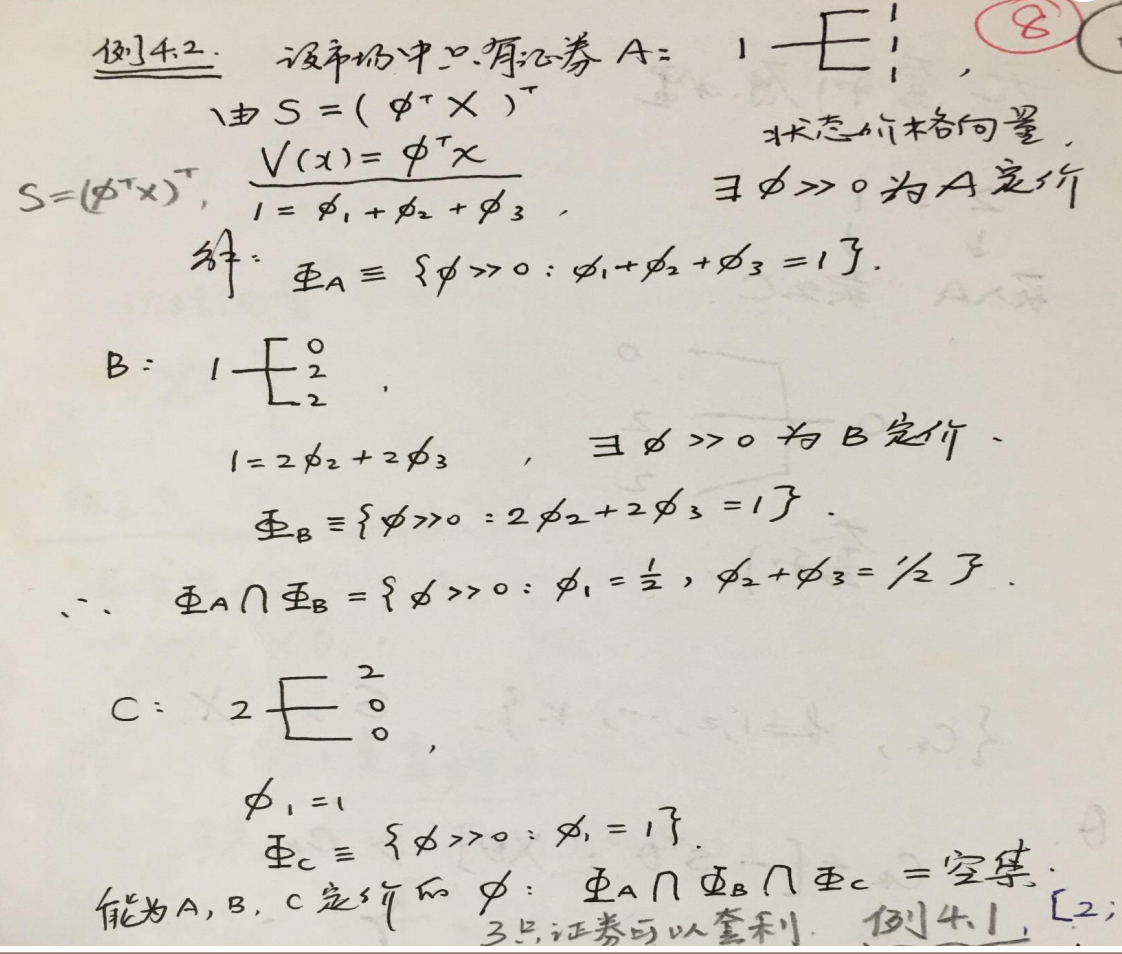 例4.2. 设市场中只有证券A: 1 1 1 1 , 8
由 S = ( φᵀ X )ᵀ
状态价格向量,
V(x) = φᵀx
S=(φᵀx)ᵀ,
∃ φ >> 0 为 A 定价
1 = φ₁ + φ₂ + φ₃ ,
解: Φ_A ≡ {φ >> 0 : φ₁+φ₂+φ₃ = 1}.
B: 1 0 2 2 ,
1 = 2φ₂ + 2φ₃ , ∃ φ >> 0 为 B 定价.
Φ_B ≡ {φ>>0 : 2φ₂+2φ₃ = 1}.
∴ Φ_A ∩ Φ_B = {φ >> 0 : φ₁ = ½, φ₂+φ₃ = 1/2}.
C: 2 2 0 0 ,
φ₁ = 1
Φ_C ≡ {φ>>0 : φ₁ = 1}.
能为A, B, C定价的 φ: Φ_A ∩ Φ_B ∩ Φ_C = 空集.
3只证券可以套利. 例4.1, [2;